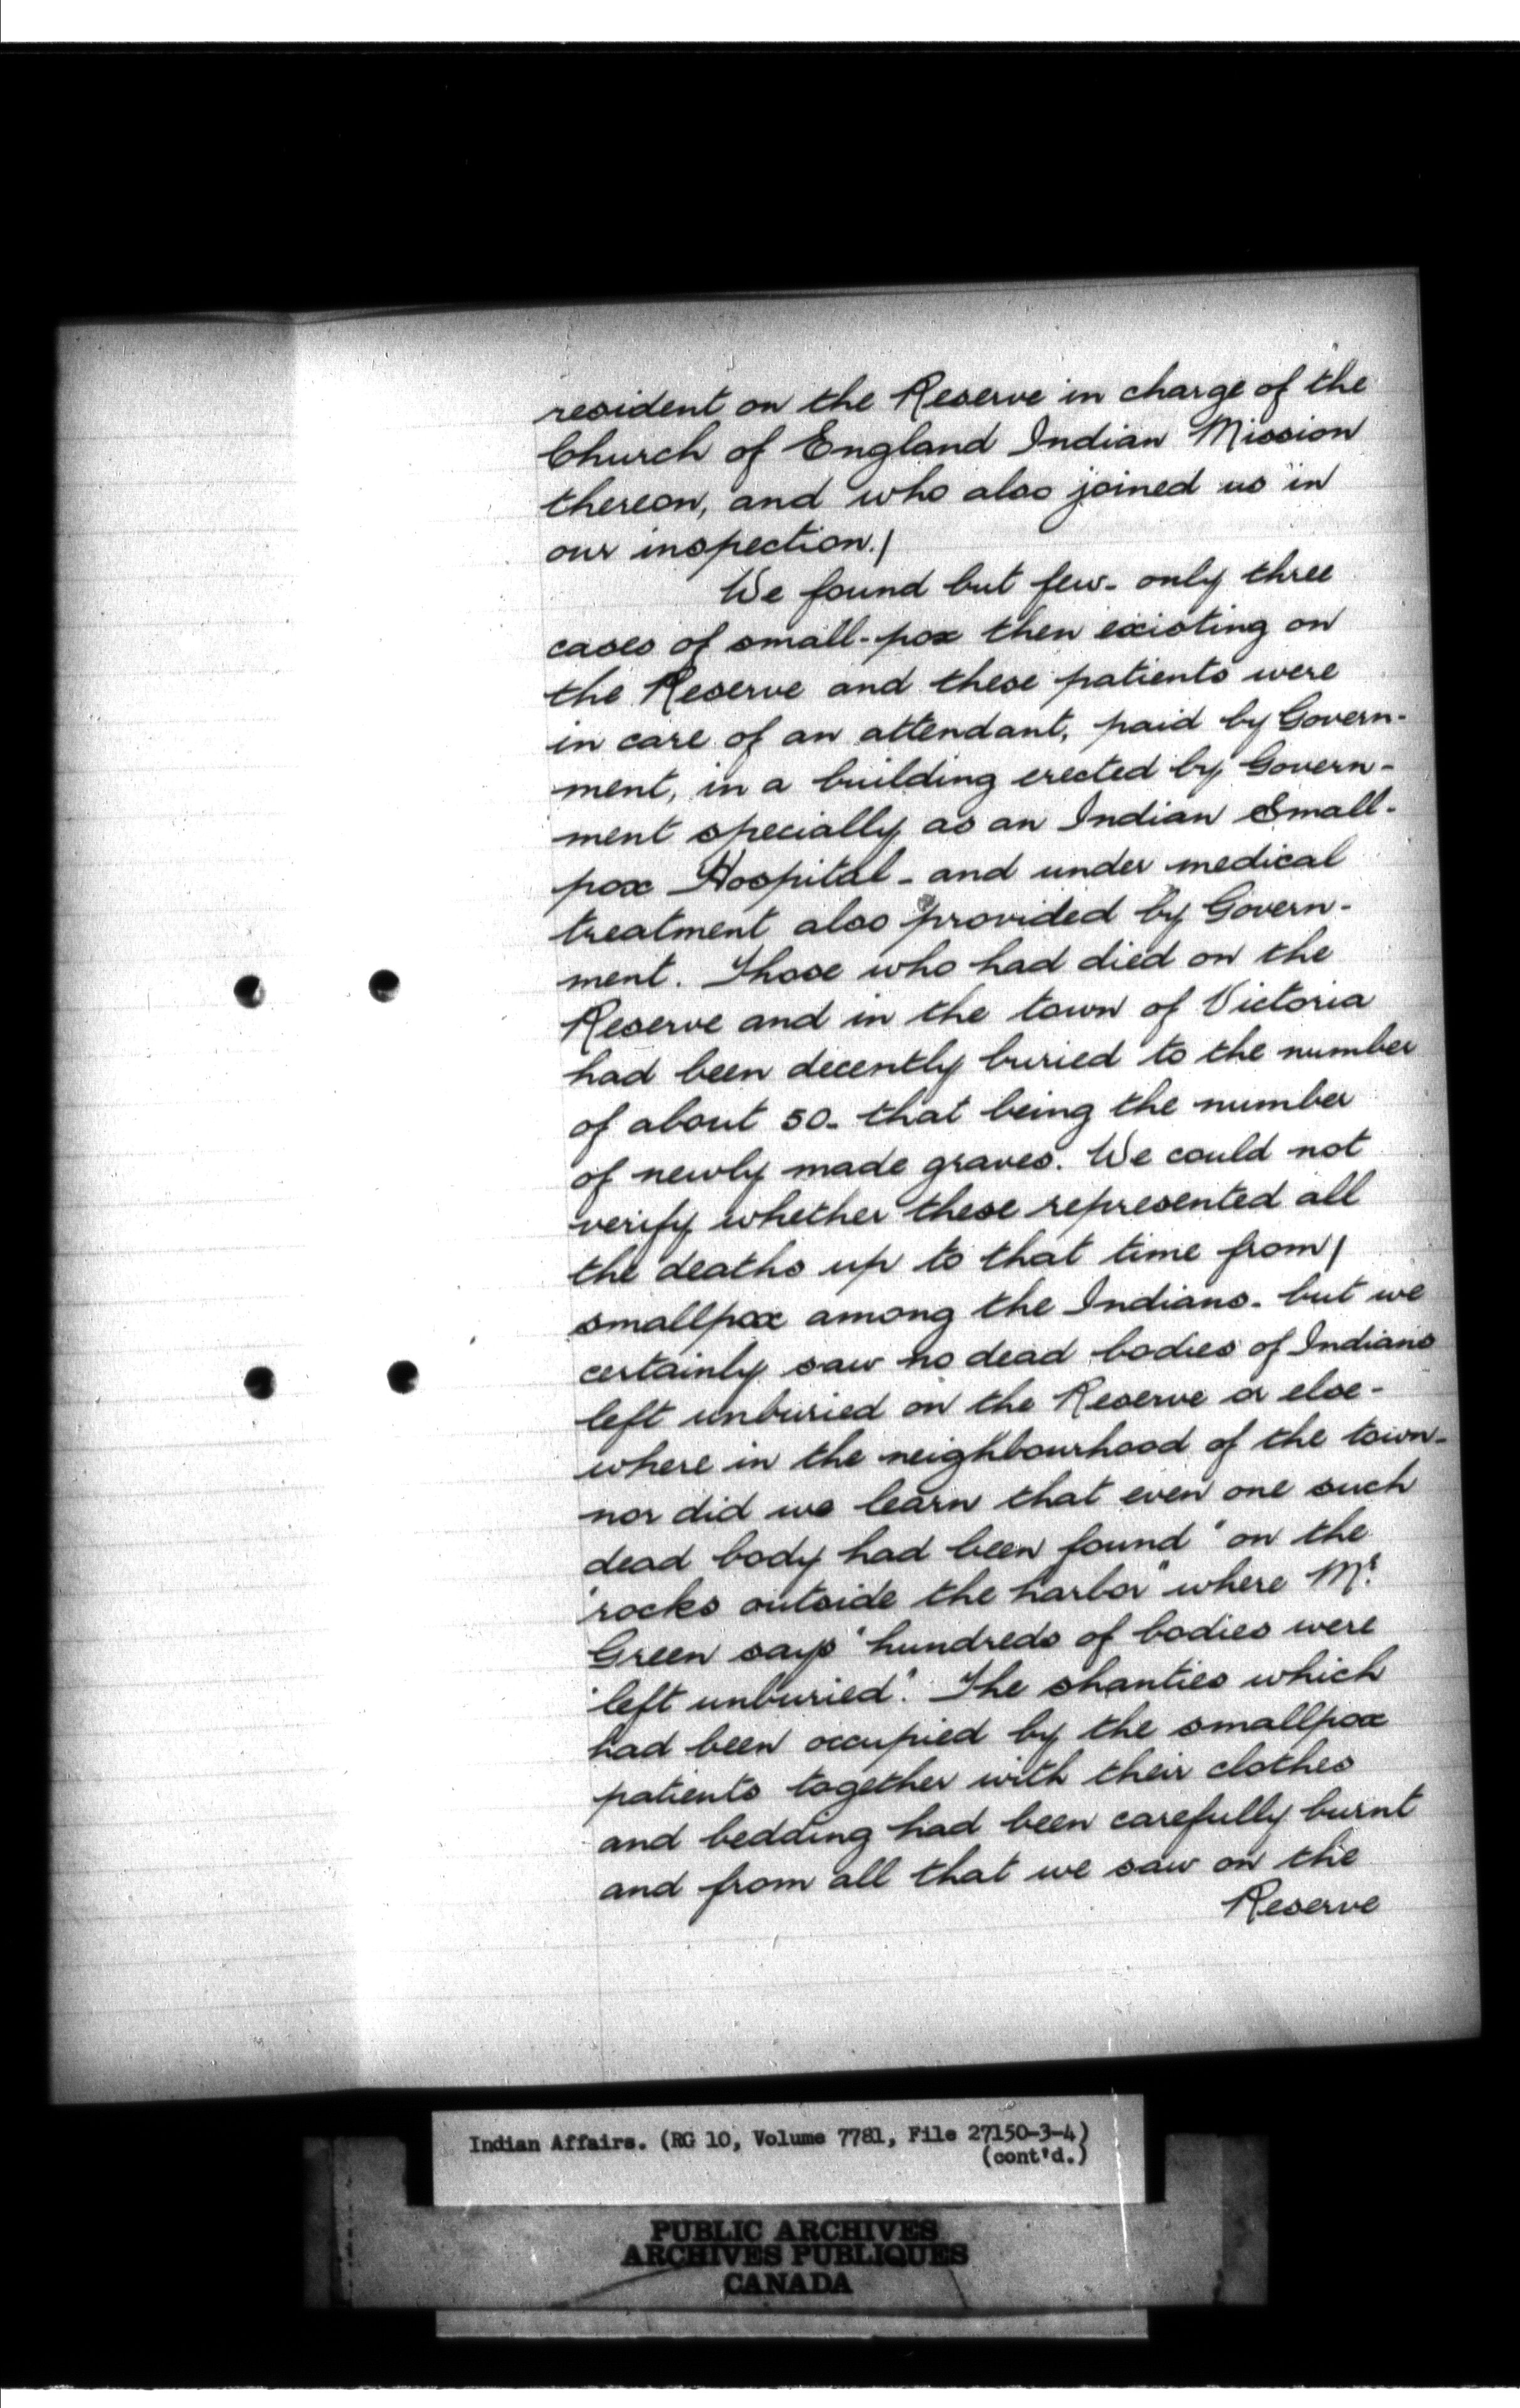 resident on the Reserve in charge of the
Church of England Indian Mission
thereon, and who also joined us in
our inspection.)
We found but few - only three
cases of small-pox then existing on
the Reserve and these patients were
in care of an attendant, paid by Govern-
ment, in a building erected by Govern-
ment specially as an Indian Small-
pox Hospital - and under medical
treatment also provided by Govern-
ment. Those who had died on the
Reserve and in the town of Victoria
had been decently buried to the number
of about 50 - that being the number
of newly made graves. We could not
verify whether these represented all
the deaths up to that time from)
smallpox among the Indians - but we
certainly saw no dead bodies of Indians
left unburied on the Reserve or else-
where in the neighbourhood of the town -
nor did we learn that even one such
dead body had been found "on the
"rocks outside the harbor" where Mr.
Green says "hundreds of bodies were
"left unburied". The shanties which
had been occupied by the smallpox
patients together with their clothes
and bedding had been carefully burnt
and from all that we saw on the
Reserve
Indian Affairs. (RG 10, Volume 7781, File 27150-3-4)
(cont'd.)
PUBLIC ARCHIVES
ARCHIVES PUBLIQUES
CANADA